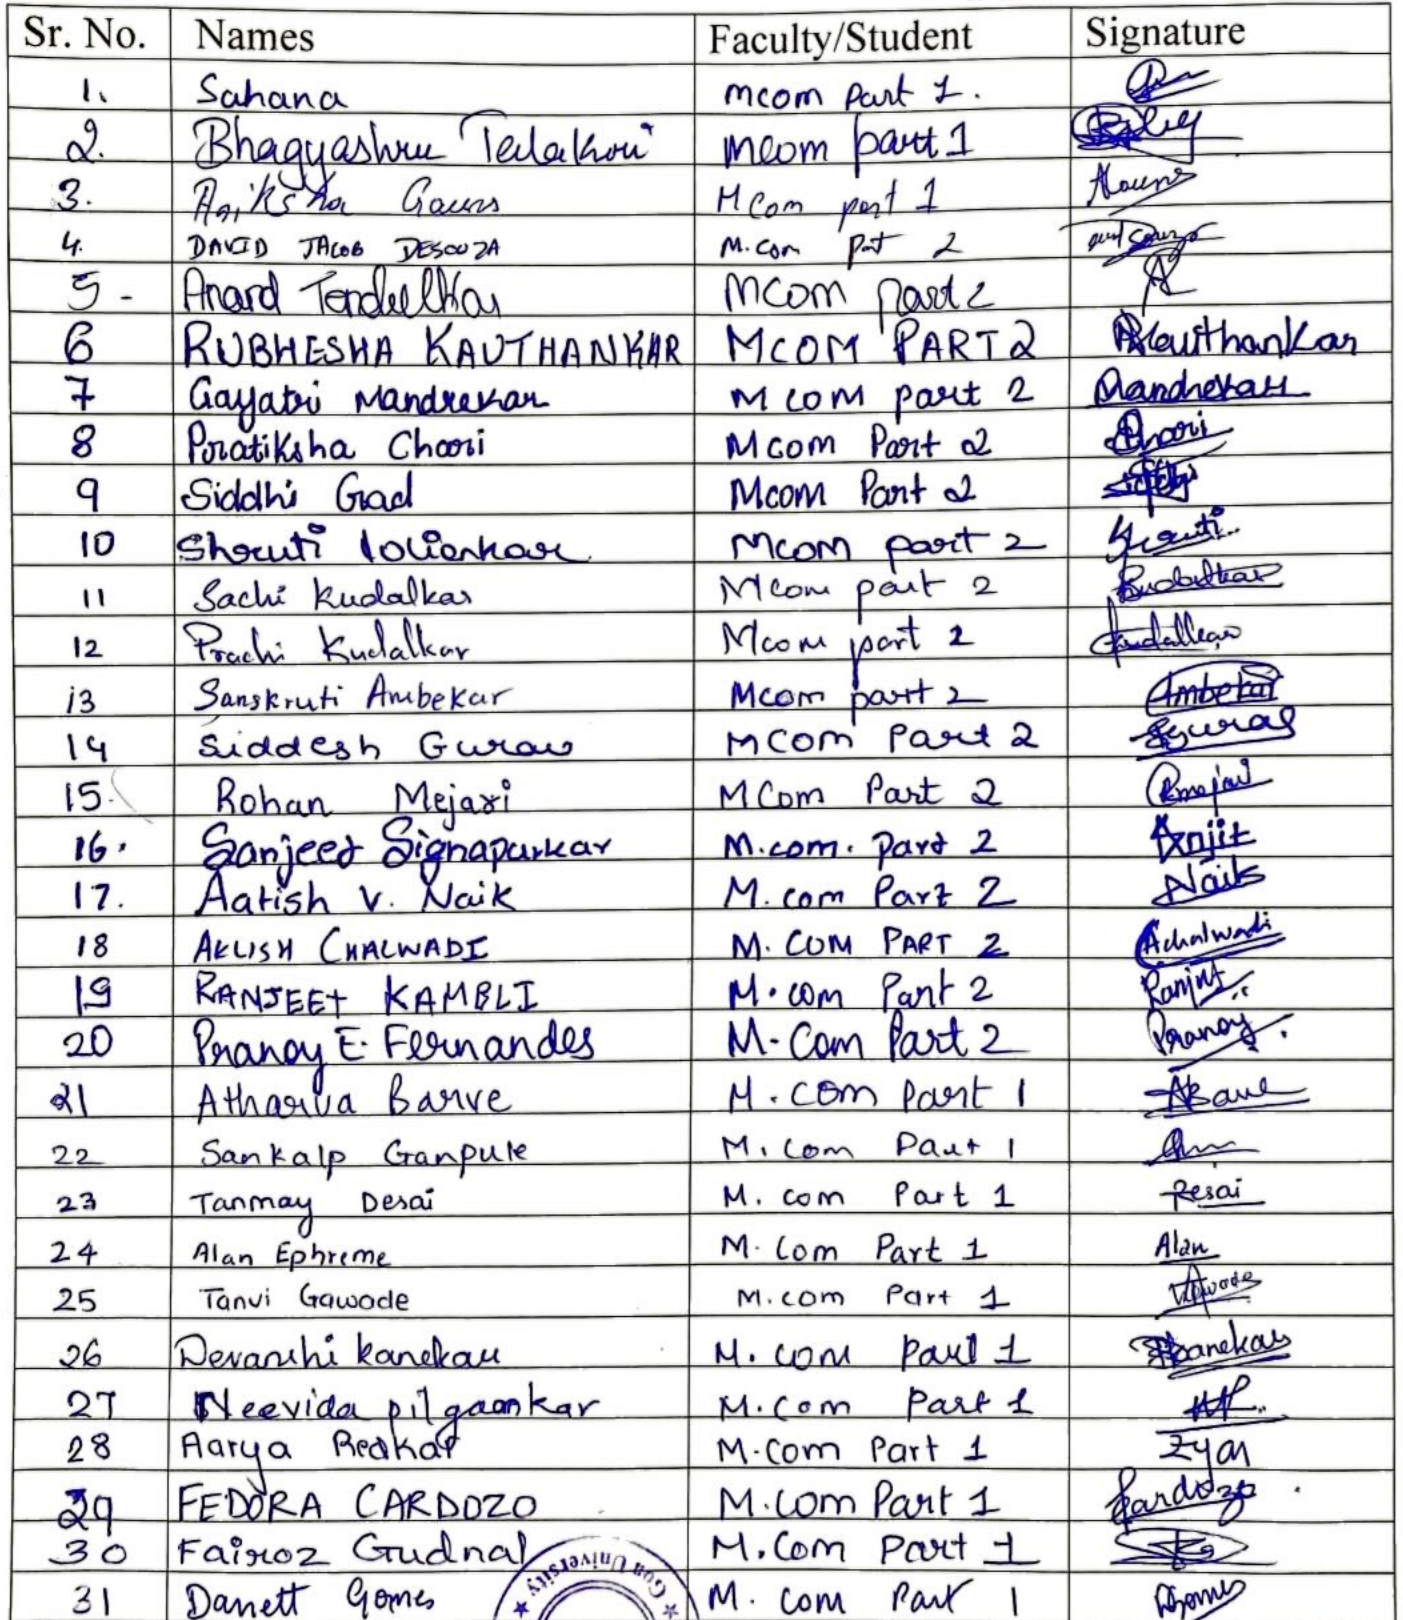 Sr. No. Names Faculty/Student Signature
1. Sahana Mcom Part 1.
2. Bhagyashree Telakoui Mcom part 1
3. Gauns M Com part 1
4. DAVID JACOB DESOUZA M.com Part 2
5 - Anand MCOM Part 2
6 RUBHESHA KAUTHANKAR MCOM PART 2 RKauthankar
7 Gayatri Mandrekar M COM part 2 Mandrekar
8 Pratiksha Chari Mcom Part 2 Chari
9 Siddhi Gad Mcom Part 2
10 Shruti Mcom part 2 Shruti
11 Sachi Kudalkar Mcom part 2 Kudalkar
12 Prachi Kudalkar Mcom part 2 Kudalkar
13 Sanskruti Ambekar Mcom part 2 Ambekar
14 Siddesh Gurav MCOM Part 2 Gurav
15. Rohan Mejari MCom Part 2 Rmejari
16. Sanjeet Signapurkar M.com. Part 2 Anjit
17. Aatish V. Naik M. com Part 2 Naik
18 AKLISH CHALWADI M. COM PART 2 Achalwadi
19 RANJEET KAMBLI M. com Part 2 Ranjit
20 Pranoy E. Fernandes M. Com Part 2 Pranoy
21 Atharva Barve M. Com Part 1 ABarve
22 Sankalp Ganpule M. Com Part 1
23 Tanmay Desai M. com Part 1 Desai
24 Alan Ephreme M. Com Part 1 Alan
25 Tanvi Gawade M.com Part 1 Gawade
26 Devanshi Kanekar M. com Part 1 Kanekar
27 Neevida pilgaonkar M.Com Part 1
28 Aarya Redkar M.Com Part 1
29 FEDORA CARDOZO M.Com Part 1 Cardozo
30 Fairoz Gudnal M.Com Part 1
31 Danett Gomes M. Com Part 1 Gomes
Goa University